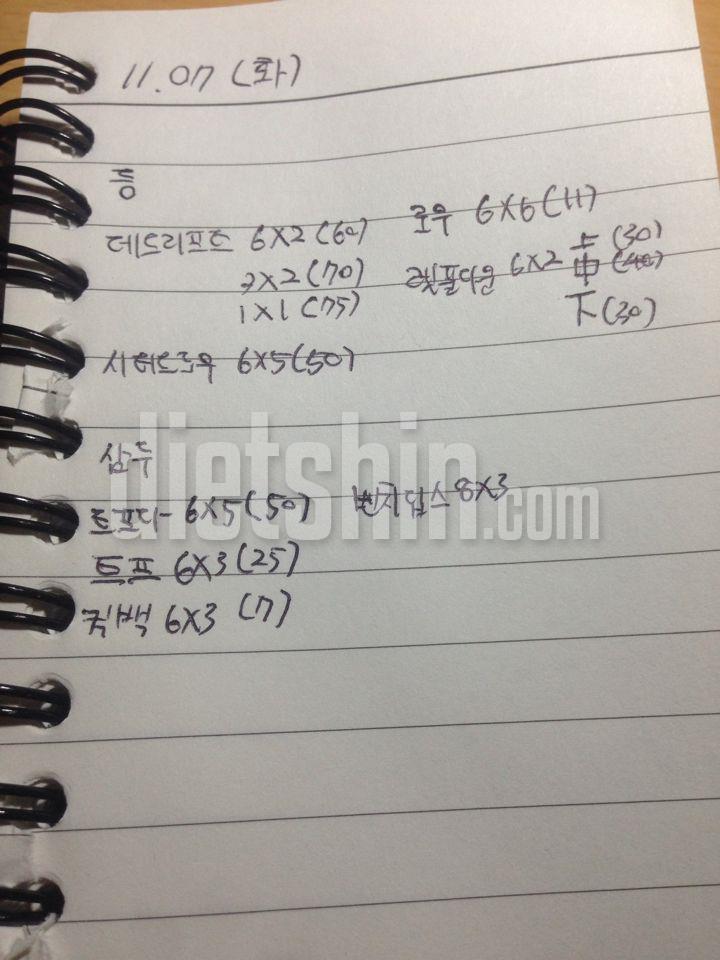 11.07 (화)
등
데드리프트 6X2 (60)
3X2 (70)
1X1 (75)
시티드로우 6X5 (50)
로우 6X6 (11)
랫풀다운 6X2 上 (30)
中 (40)
下 (30)
삼두
트프다- 6X5 (50)
트프 6X3 (25)
킥백 6X3 (7)
벤치딥스 8X3
dietshin.com